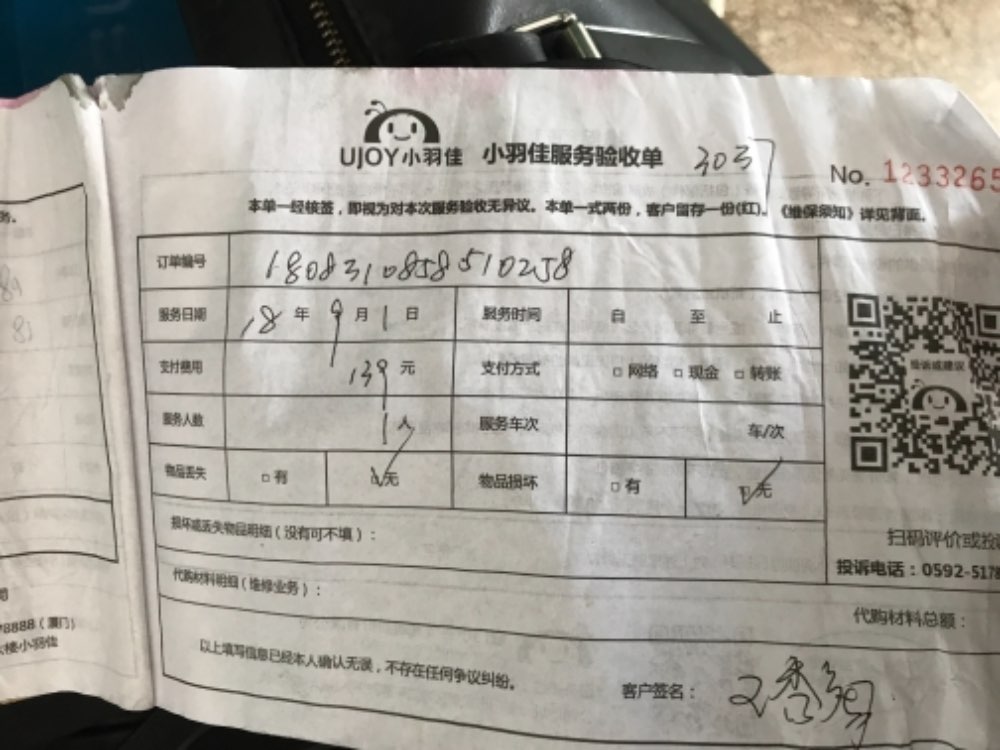 UJOY小羽佳 小羽佳服务验收单 3037
No. 1233265
本单一经核签，即视为对本次服务验收无异议。本单一式两份，客户留存一份(红)。《维保须知》详见背面。
订单编号 1808310858510258
服务日期 18 年 9 月 1 日 服务时间 自 至 止
支付费用 139 元 支付方式 □ 网络 □ 现金 □ 转账
服务人数 1 人 服务车次 车/次
物品丢失 □ 有 ☑ 无 物品损坏 □ 有 ☑ 无
投诉或建议
损坏或丢失物品明细（没有可不填）：
扫码评价或投
投诉电话：0592-5178
代购材料明细（维修业务）：
代购材料总额：
以上填写信息已经本人确认无误，不存在任何争议纠纷。
客户签名：
务。
司
8888（厦门）
大楼小羽佳